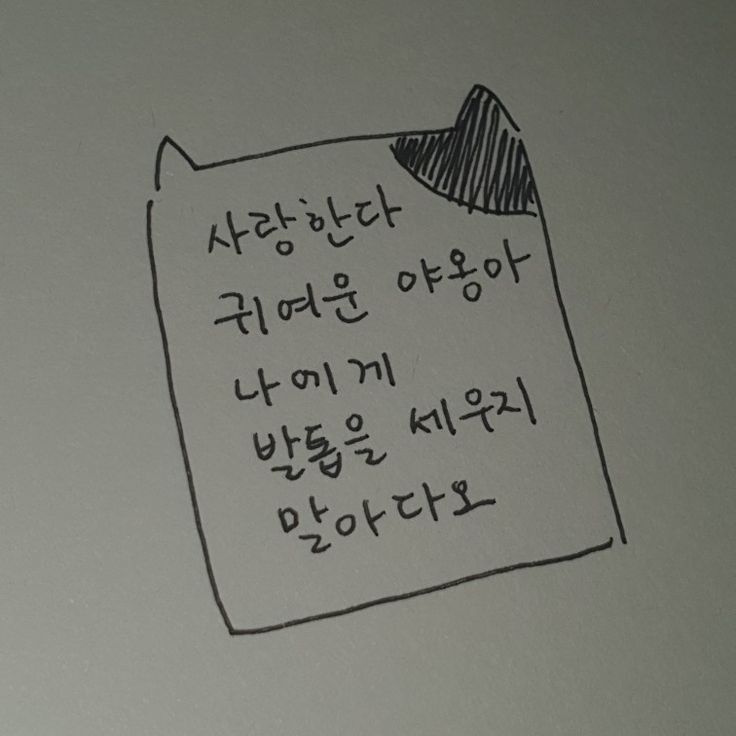 사랑한다
귀여운 야옹아
나에게
발톱을 세우지
말아다오